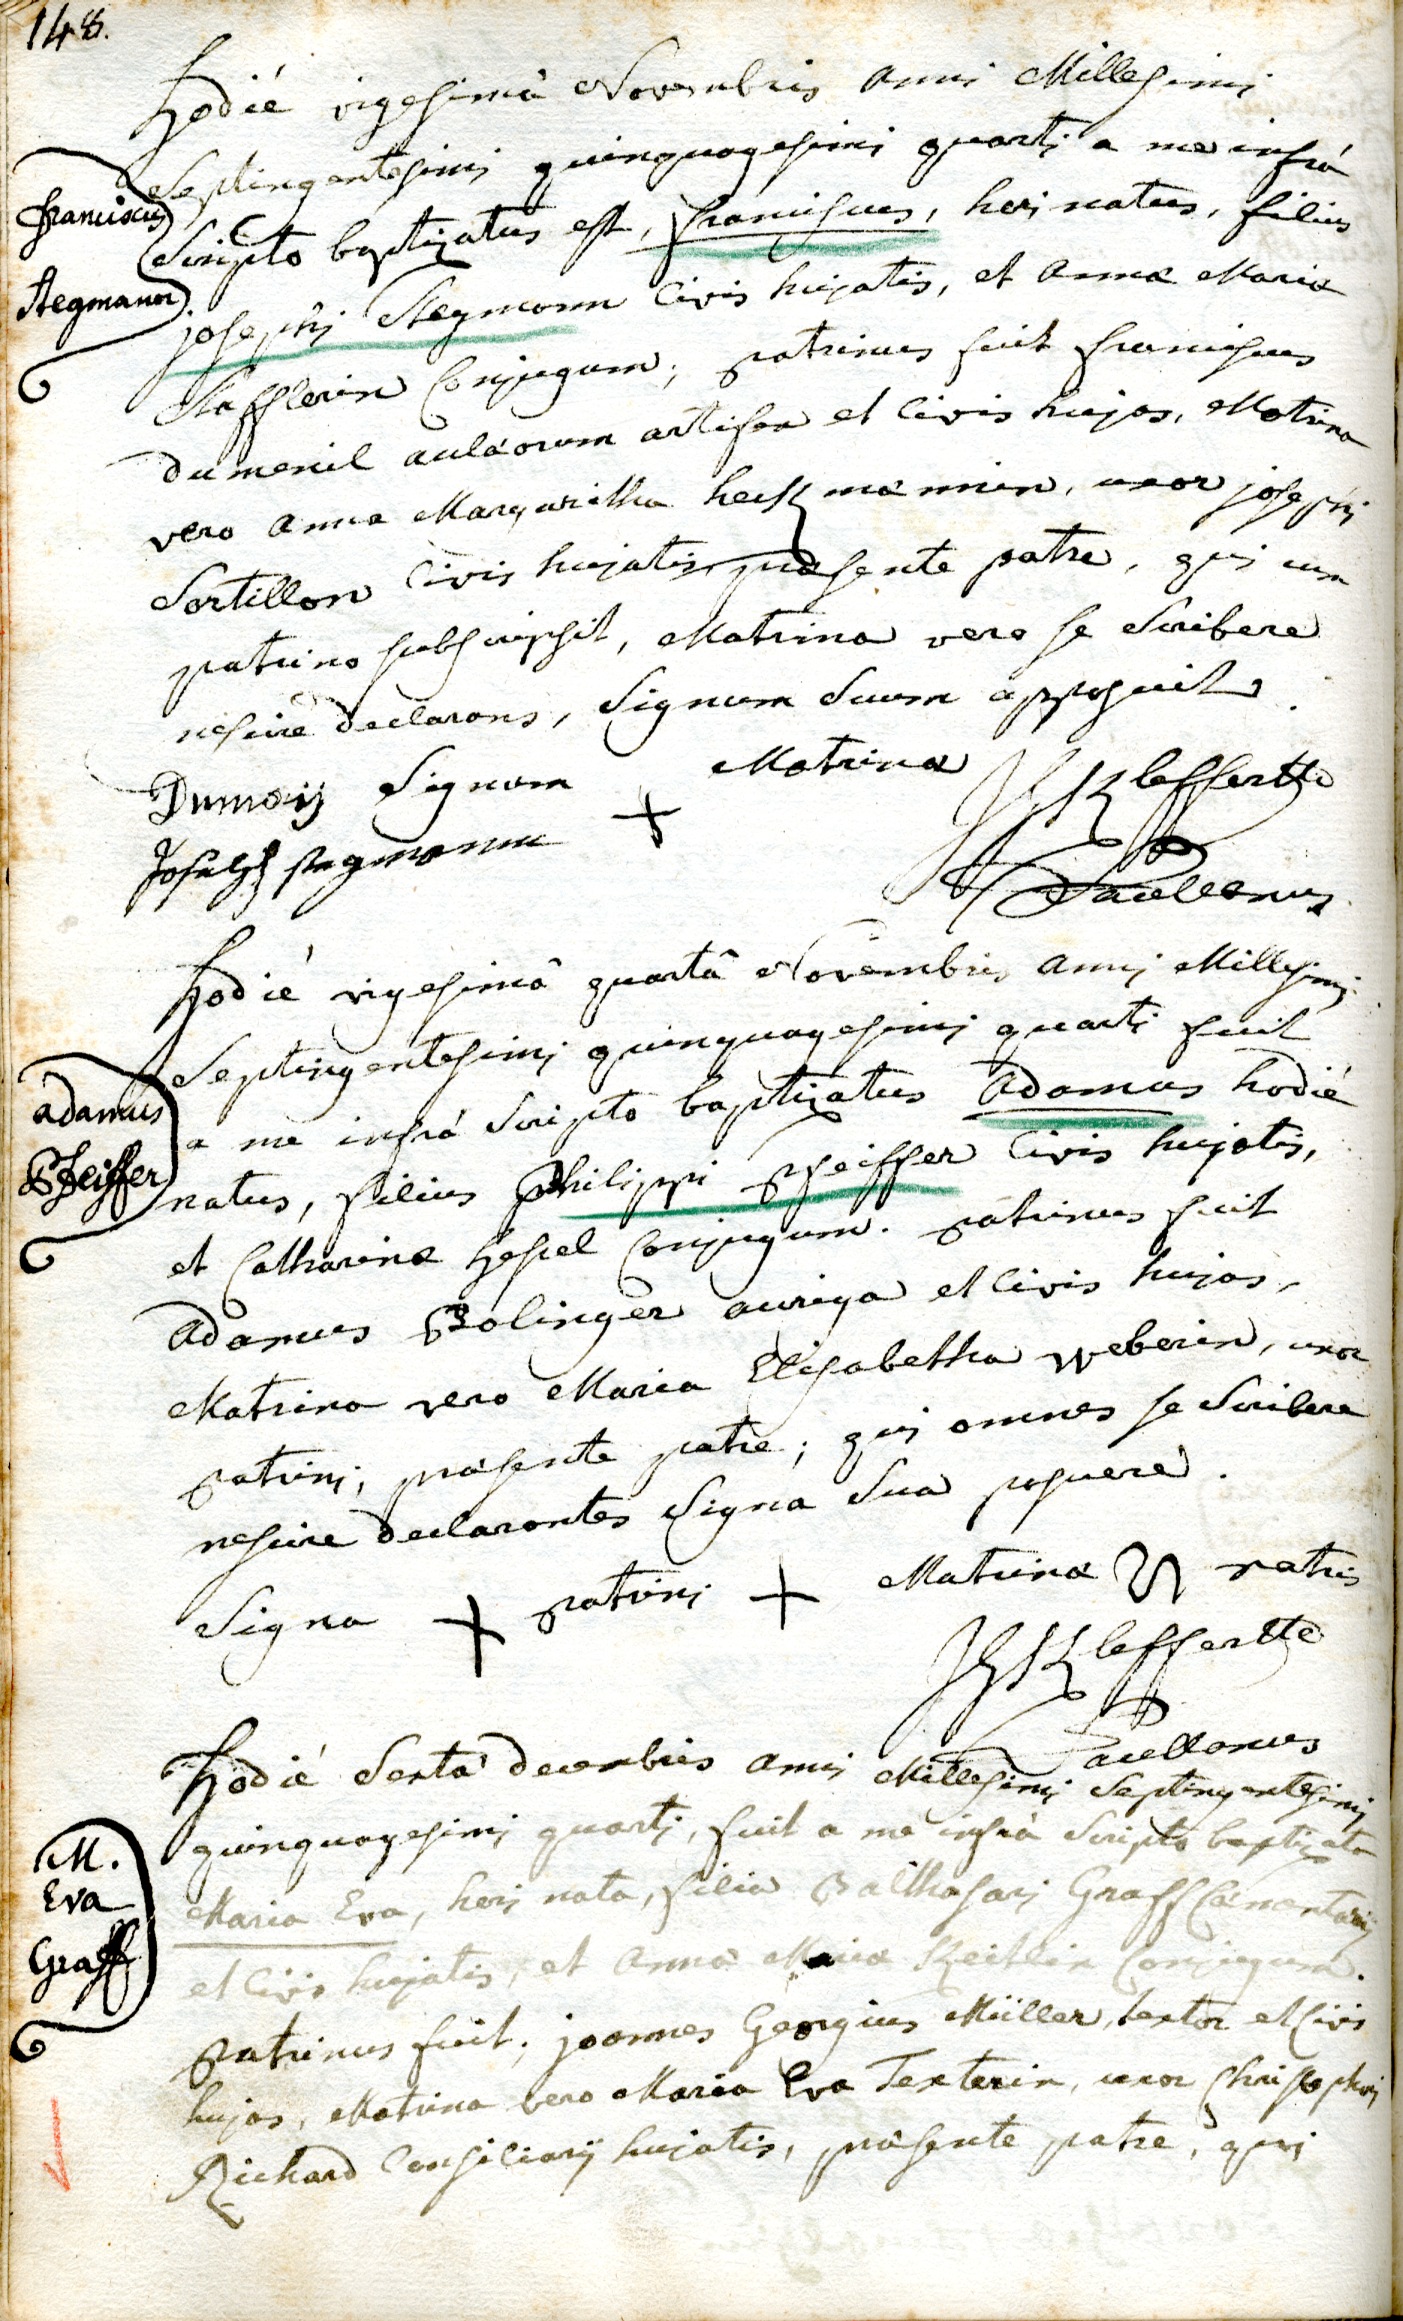 148.
Hodié vigesimâ Novembris anni Millesimi
Septingentesimi quinquagesimi quarti a me infrá
Scripto baptizatus est, franciscus, heri natus, filius
josephi Stegmann Civis hujatis, et Annæ Mariæ
Stafflerin Conjugum; patrinus fuit franciscus
dumenil aulæorum artifex et Civis hujas, Matrina
vero Anna Margaritha heckmannin, uxor josephi
Sertillon Civis hujatis, præsente patre, qui cum
patrino subscripsit, Matrina vero se Scribere
nescire declarans, Signum Suum apposuit.
Signum + Matrinæ
Joseph stegmann
JGKleffertte
Sacellanus
franciscus
Stegmann
Hodié vigesimâ quartâ Novembris anni Millesimi
Septingentesimi quinquagesimi quarti fuit
a me infrá Scripto baptizatus Adamus hodié
natus, filius Philippi pfeiffer Civis hujatis,
et Catharinæ hescel Conjugum. patrinus fuit
Adamus Bolinger auriga et Civis hujas,
Matrina vero Maria Elisabetha weberin, uxor
patrini, præsente patre; qui omnes se Scribere
nescire declarantes Signa Sua posuere.
Signa + patrini + Matrinæ patris
JGKleffertte
Sacellanus
adamus
Pfeiffer
Hodié Sextâ decembris anni Millesimi Septingentesimi
quinquagesimi quarti, fuit a me infrà Scripto baptizata
Maria Eva, heri nata, filia Balthasari Graff Cæmentarij
et Civis hujatis, et Anna Mariæ Keitlin Conjugum.
patrinus fuit, joannes Georgius Müller, textor et Civis
hujas, Matrina vero Maria Eva Texterin, uxor Christophori
Richard Consiliarij hujatis, præsente patre, qui
M.
Eva
Graff